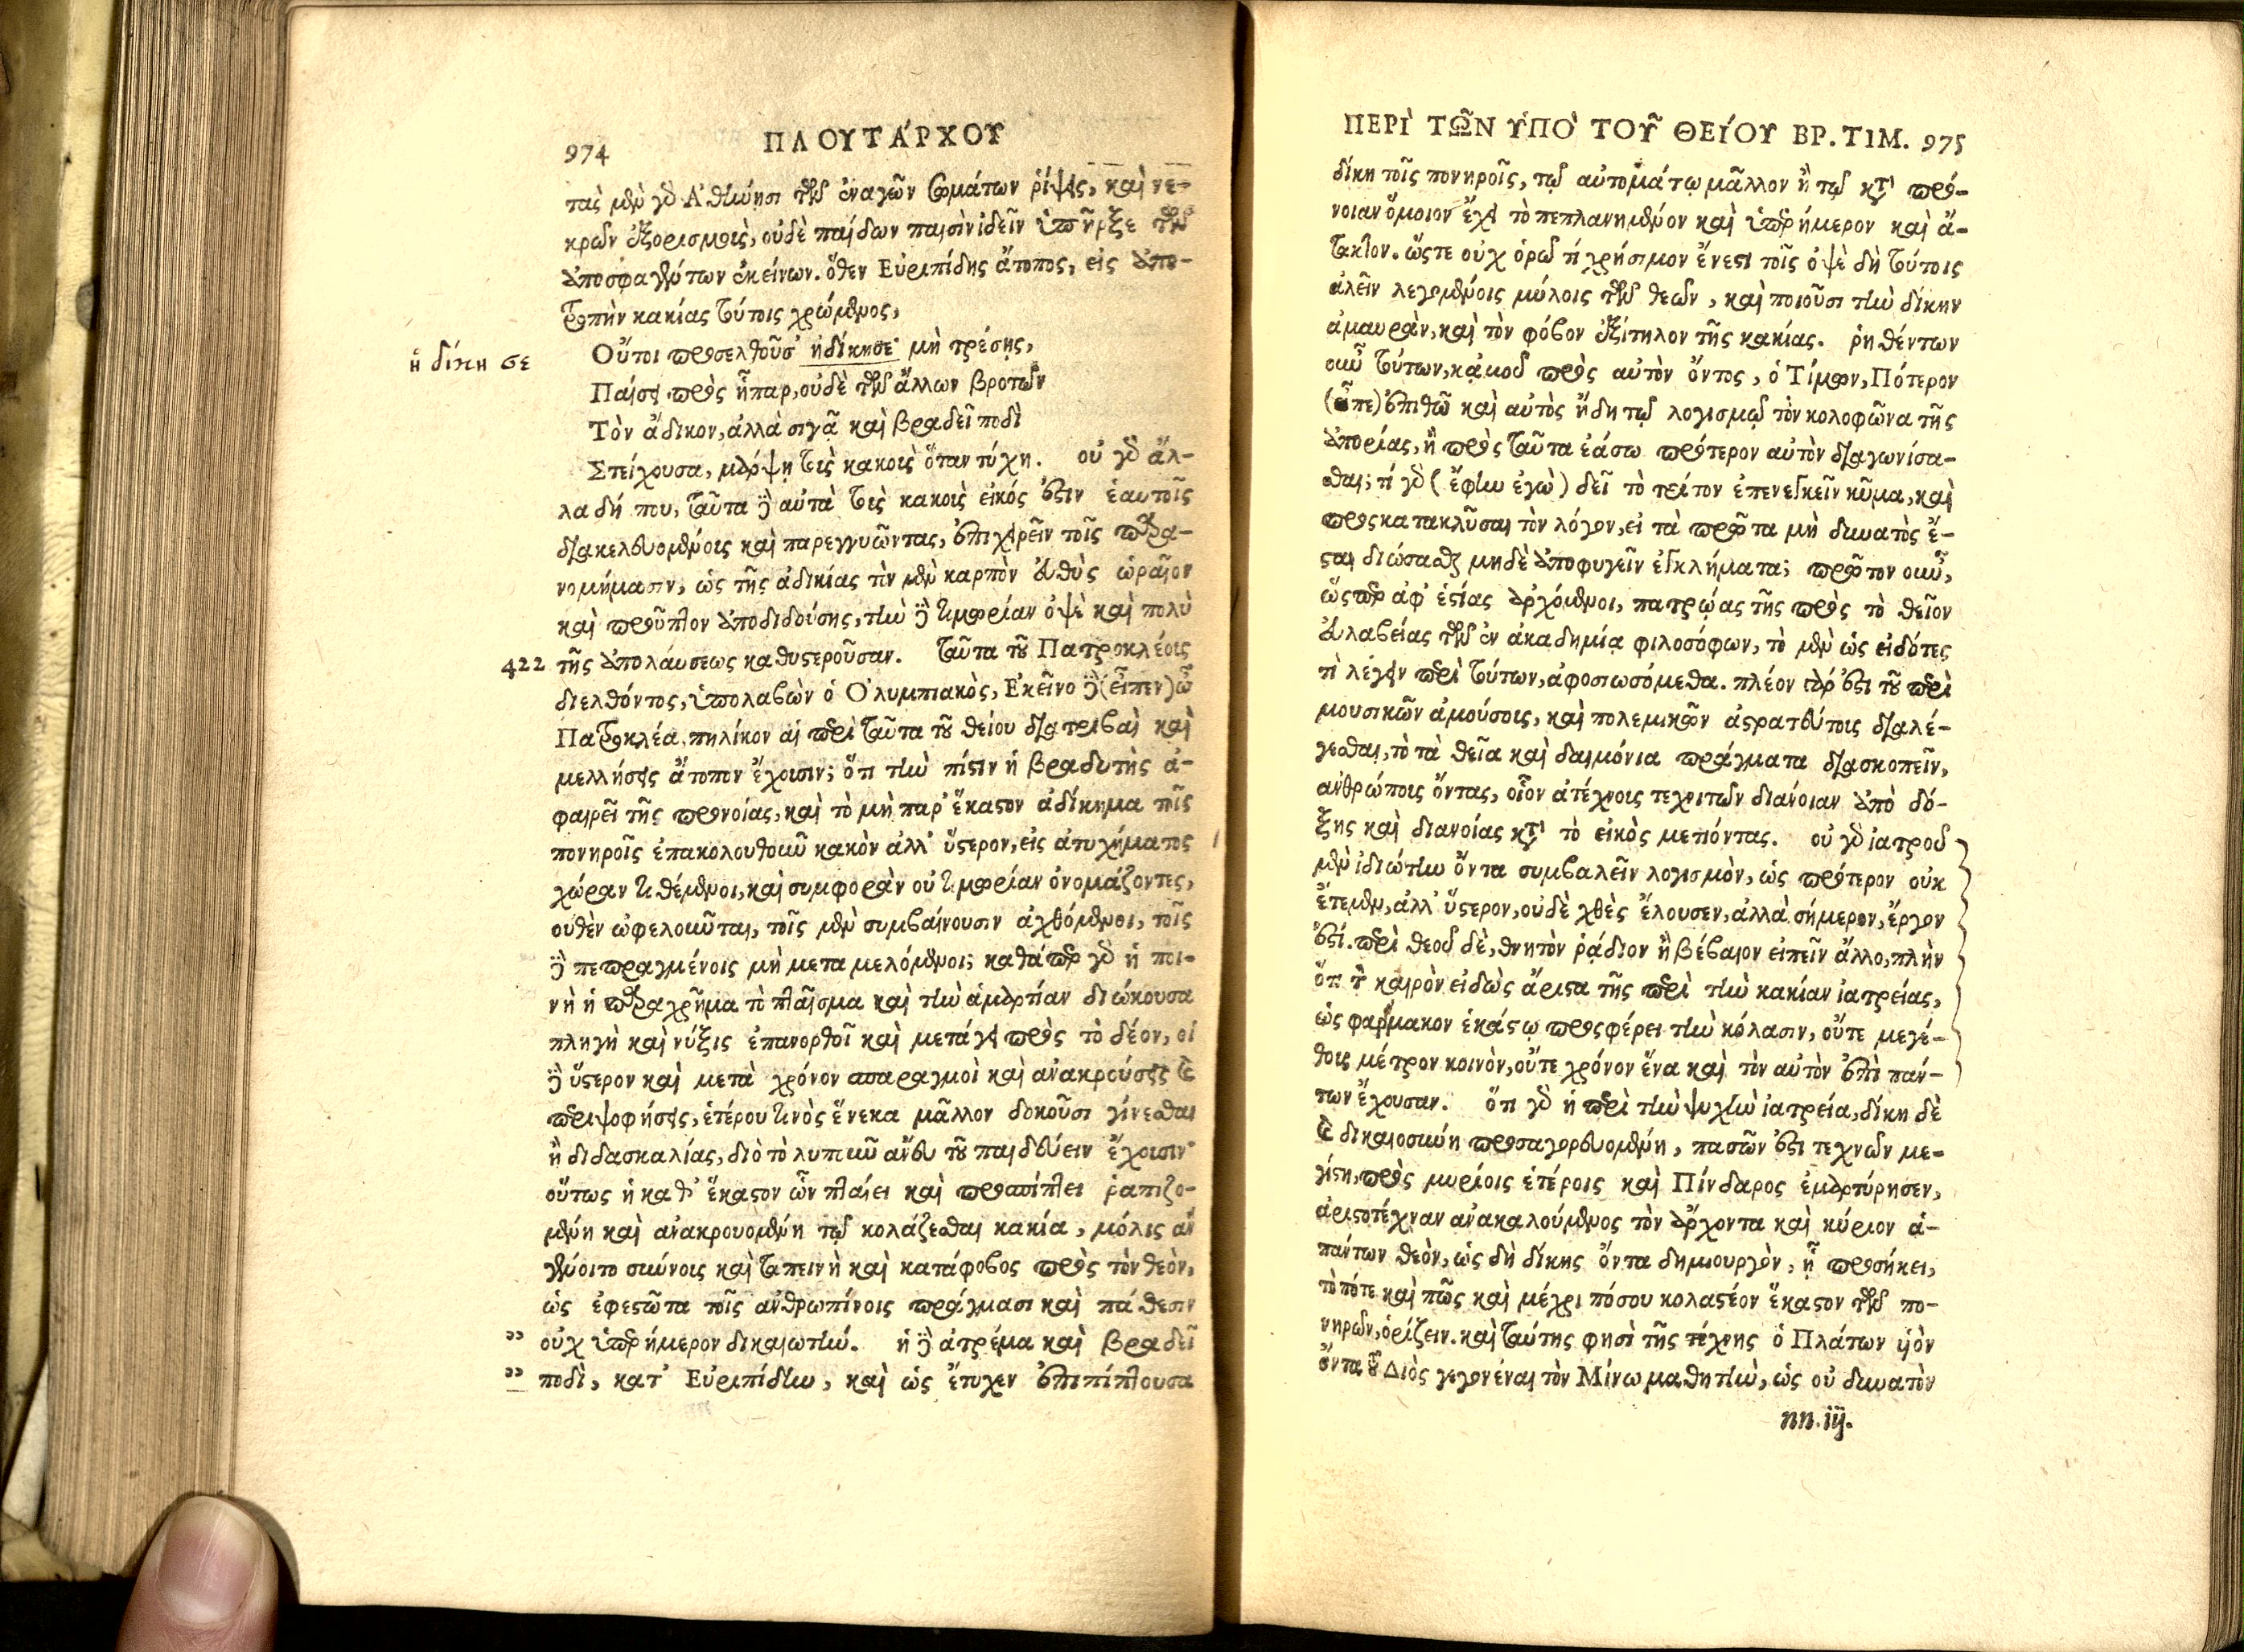 974 ΠΛΟΥΤΆΡΧΟΥ
τας μὲν γὰρ Ἀθήνησι τῶν ἐναγῶν σωμάτων ῥίψεις, καὶ νε-
κρῶν ἐξορισμοὺς, οὐδὲ παίδων παισὶν ἰδεῖν ὑπῆρξε τῶν
ἀποσφαγέντων ἐκείνων. ὅθεν Εὐριπίδης ἄτοπος, εἰς ἀπο-
τροπὴν κακίας τούτοις χρώμενος,
Οὔτοι προσελθοῦσ' ἠδίκησε· μὴ τρέσῃς,
ἡ δίκη σε
Παίσει πρὸς ἧπαρ, οὐδὲ τῶν ἄλλων βροτῶν
Τὸν ἄδικον, ἀλλὰ σιγᾷ καὶ βραδεῖ ποδὶ
Στείχουσα, μάρψῃ τοὺς κακοὺς ὅταν τύχῃ. οὐ γὰρ ἄλ-
λα δή που, ταῦτα δὲ αὐτὰ τοὺς κακοὺς εἰκός ἐστιν ἑαυτοῖς
διακελευομένοις καὶ παρεγγυῶντας, ἐπιχειρεῖν τοῖς παρα-
νομήμασιν, ὡς τῆς ἀδικίας τὸν μὲν καρπὸν εὐθὺς ὡραῖον
καὶ προῦπτον ἀποδιδούσης, τὴν δὲ τιμωρίαν ὀψὲ καὶ πολὺ
422 τῆς ἀπολαύσεως καθυστεροῦσαν. ταῦτα τοῦ Πατροκλέους
διελθόντος, ὑπολαβὼν ὁ Ὀλυμπιακὸς, Ἐκεῖνο δὲ (εἶπεν) ὦ
Πατροκλέα, πηλίκον αἱ περὶ ταῦτα τοῦ θείου διατριβαὶ καὶ
μελλήσεις ἄτοπον ἔχουσιν; ὅτι τὴν πίστιν ἡ βραδυτὴς ἀ-
φαιρεῖ τῆς προνοίας, καὶ τὸ μὴ παρ' ἕκαστον ἀδίκημα τοῖς
πονηροῖς ἐπακολουθοῦν κακὸν ἀλλ' ὕστερον, εἰς ἀτυχήματος
χώραν τιθέμενοι, καὶ συμφορὰν οὐ τιμωρίαν ὀνομάζοντες,
οὐθὲν ὠφελοῦνται, τοῖς μὲν συμβαίνουσιν ἀχθόμενοι, τοῖς
δὲ πεπραγμένοις μὴ μεταμελόμενοι; καθάπερ γὰρ ἡ ποι-
νὴ ἡ παραχρῆμα τὸ πταῖσμα καὶ τὴν ἁμαρτίαν διώκουσα
πληγὴ καὶ νύξις ἐπανορθοῖ καὶ μετάγει πρὸς τὸ δέον, οἱ
δὲ ὕστερον καὶ μετὰ χρόνον σπαραγμοὶ καὶ ἀνακρούσεις καὶ
περιψοφήσεις, ἑτέρου τινὸς ἕνεκα μᾶλλον δοκοῦσι γίνεσθαι
ἢ διδασκαλίας, διὸ τὸ λυποῦν ἄνευ τοῦ παιδεύειν ἔχουσιν·
οὕτως ἡ καθ' ἕκαστον ὧν πταίει καὶ προσπίπτει ῥαπιζο-
μένη καὶ ἀνακρουομένη τῷ κολάζεσθαι κακία, μόλις ἂν
γένοιτο σύννους καὶ ταπεινὴ καὶ κατάφοβος πρὸς τὸν θεὸν,
ὡς ἐφεστῶτα τοῖς ἀνθρωπίνοις πράγμασι καὶ πάθεσιν
" οὐχ ὑπερήμερον δικαιωτήν. ἡ δὲ ἀτρέμα καὶ βραδεῖ
" ποδὶ, κατ' Εὐριπίδην, καὶ ὡς ἔτυχεν ἐπιπίπτουσα
ΠΕΡῚ ΤΩ͂Ν ὙΠῸ ΤΟΥ͂ ΘΕΊΟΥ ΒΡ. ΤΙΜ. 975
δίκη τοῖς πονηροῖς, τῷ αὐτομάτῳ μᾶλλον ἢ τῷ κατὰ πρό-
νοιαν ὅμοιον ἔχει τὸ πεπλανημένον καὶ ὑπερήμερον καὶ ἄ-
τακτον. ὥστε οὐχ ὁρῶ τί χρήσιμον ἔνεστι τοῖς ὀψὲ δὴ τούτοις
ἀλεῖν λεγομένοις μύλοις τῶν θεῶν, καὶ ποιοῦσι τὴν δίκην
ἀμαυρὰν, καὶ τὸν φόβον ἐξίτηλον τῆς κακίας. ῥηθέντων
οὖν τούτων, κἀμοῦ πρὸς αὐτὸν ὄντος, ὁ Τίμων, Πότερον
(εἶπε) ἐπιθῶ καὶ αὐτὸς ἤδη τῷ λογισμῷ τὸν κολοφῶνα τῆς
ἀπορίας, ἢ πρὸς ταῦτα ἐάσω πρότερον αὐτὸν διαγωνίσα-
σθαι; τί γὰρ (ἔφην ἐγὼ) δεῖ τὸ τρίτον ἐπενεγκεῖν κῦμα, καὶ
προσκατακλῦσαι τὸν λόγον, εἰ τὰ πρῶτα μὴ δυνατὸς ἔ-
σται διώσασθαι μηδὲ ἀποφυγεῖν ἐγκλήματα; πρῶτον οὖν,
ὥσπερ ἀφ' ἑστίας ἀρχόμενοι, πατρῴας τῆς πρὸς τὸ θεῖον
εὐλαβείας τῶν ἐν ἀκαδημίᾳ φιλοσόφων, τὸ μὲν ὡς εἰδότες
τὶ λέγειν περὶ τούτων, ἀφοσιωσόμεθα. πλέον γάρ ἐστι τοῦ περὶ
μουσικῶν ἀμούσοις, καὶ πολεμικῶν ἀστρατεύτοις διαλέ-
γεσθαι, τὸ τὰ θεῖα καὶ δαιμόνια πράγματα διασκοπεῖν,
ἀνθρώποις ὄντας, οἷον ἀτέχνοις τεχνιτῶν διάνοιαν ἀπὸ δό-
ξης καὶ διανοίας κατὰ τὸ εἰκὸς μετιόντας. οὐ γὰρ ἰατροῦ
μὲν ἰδιώτην ὄντα συμβαλεῖν λογισμὸν, ὡς πρότερον οὐκ
ἔτεμεν, ἀλλ' ὕστερον, οὐδὲ χθὲς ἔλουσεν, ἀλλὰ σήμερον, ἔργον
ἐστί. περὶ θεοῦ δὲ, θνητὸν ῥᾴδιον ἢ βέβαιον εἰπεῖν ἄλλο, πλὴν
ὅτι τὸν καιρὸν εἰδὼς ἄριστα τῆς περὶ τὴν κακίαν ἰατρείας,
ὡς φάρμακον ἑκάστῳ προσφέρει τὴν κόλασιν, οὔτε μεγέ-
θους μέτρον κοινὸν, οὔτε χρόνον ἕνα καὶ τὸν αὐτὸν ἐπὶ πάν-
των ἔχουσαν. ὅτι γὰρ ἡ περὶ τὴν ψυχὴν ἰατρεία, δίκη δὲ
καὶ δικαιοσύνη προσαγορευομένη, πασῶν ἐστι τεχνῶν με-
γίστη, πρὸς μυρίοις ἑτέροις καὶ Πίνδαρος ἐμαρτύρησεν,
ἀριστοτέχναν ἀνακαλούμενος τὸν ἄρχοντα καὶ κύριον ἁ-
πάντων θεὸν, ὡς δὴ δίκης ὄντα δημιουργὸν, ᾗ προσήκει,
τὸ πότε καὶ πῶς καὶ μέχρι πόσου κολαστέον ἕκαστον τῶν πο-
νηρῶν, ὁρίζειν. καὶ ταύτης φησὶ τῆς τέχνης ὁ Πλάτων υἱὸν
ὄντα τοῦ Διὸς γεγονέναι τὸν Μίνω μαθητὴν, ὡς οὐ δυνατὸν
nn. iij.